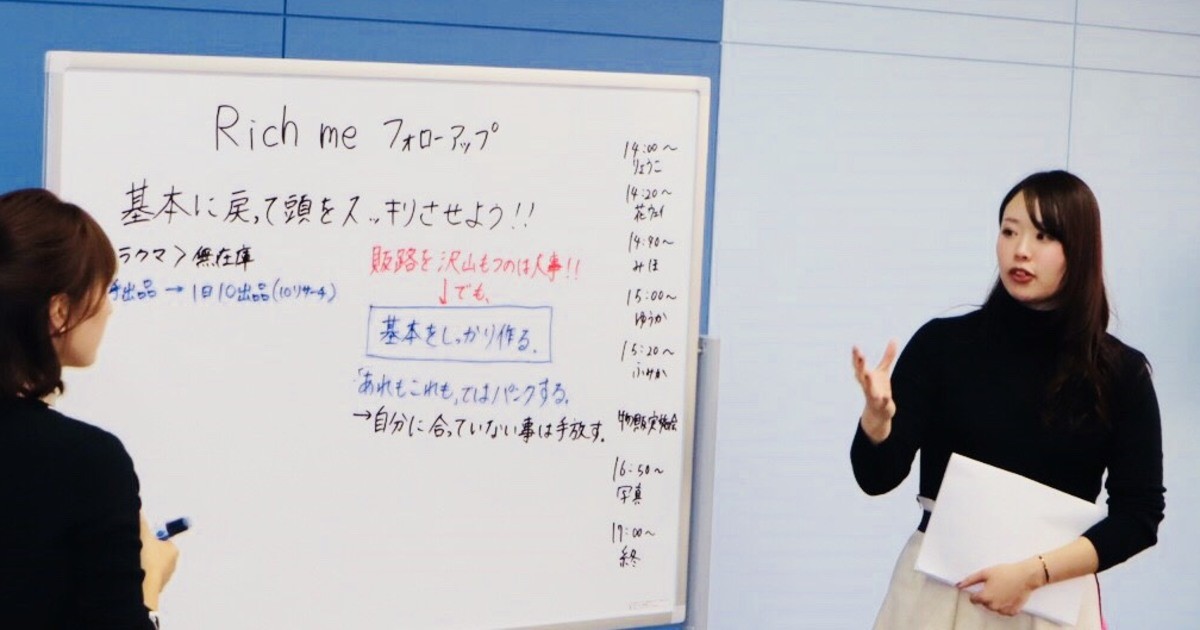 Rich me フォローアップ
基本に戻って頭をスッキリさせよう!!
ラクマ > 無在庫
出品 → 1日10出品(10リサーチ)
販路を沢山もつのは大事!!
↓でも、
基本をしっかり作る。
「あれもこれも」ではパンクする。
→自分に合っていない事は手放す。
14:00〜
りょうこ
14:20〜
花ウェイ
14:40〜
みほ
15:00〜
ゆうか
15:20〜
ふみか
物販実践会
16:50〜
写真
17:00〜
終